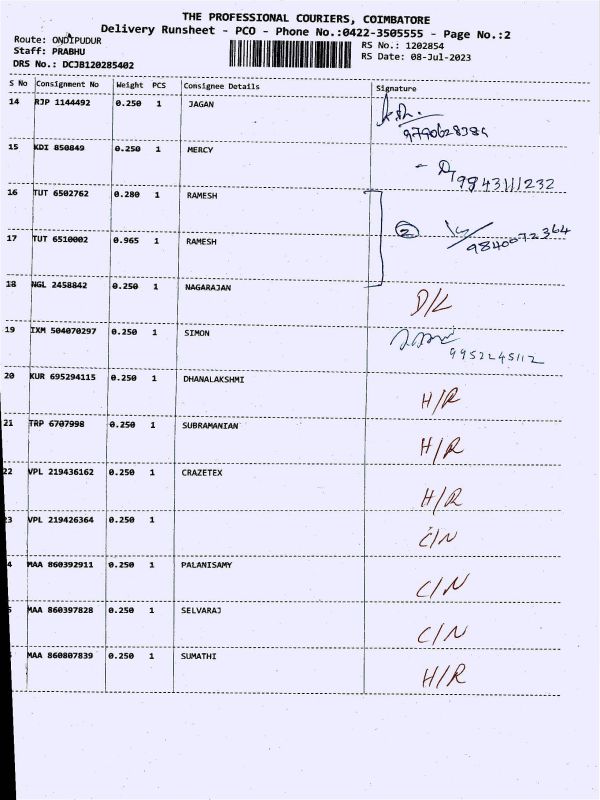 THE PROFESSIONAL COURIERS, COIMBATORE
Delivery Runsheet - PCO - Phone No.:0422-3505555 - Page No.:2
Route: ONDIPUDUR
Staff: PRABHU
DRS No.: DCJB120285402
RS No.: 1202854
RS Date: 08-Jul-2023
S No Consignment No Weight PCS Consignee Details Signature
14 RJP 1144492 0.250 1 JAGAN
9790628384
15 KDI 850849 0.250 1 MERCY
9943111232
16 TUT 6502762 0.280 1 RAMESH
2 9840072364
17 TUT 6510002 0.965 1 RAMESH
18 NGL 2458842 0.250 1 NAGARAJAN D/L
19 IXM 504070297 0.250 1 SIMON
9952245112
20 KUR 695294115 0.250 1 DHANALAKSHMI H/R
21 TRP 6707998 0.250 1 SUBRAMANIAN H/R
22 VPL 219436162 0.250 1 CRAZETEX H/R
3 VPL 219426364 0.250 1 C/N
4 MAA 860392911 0.250 1 PALANISAMY C/N
MAA 860397828 0.250 1 SELVARAJ C/N
MAA 860807839 0.250 1 SUMATHI H/R